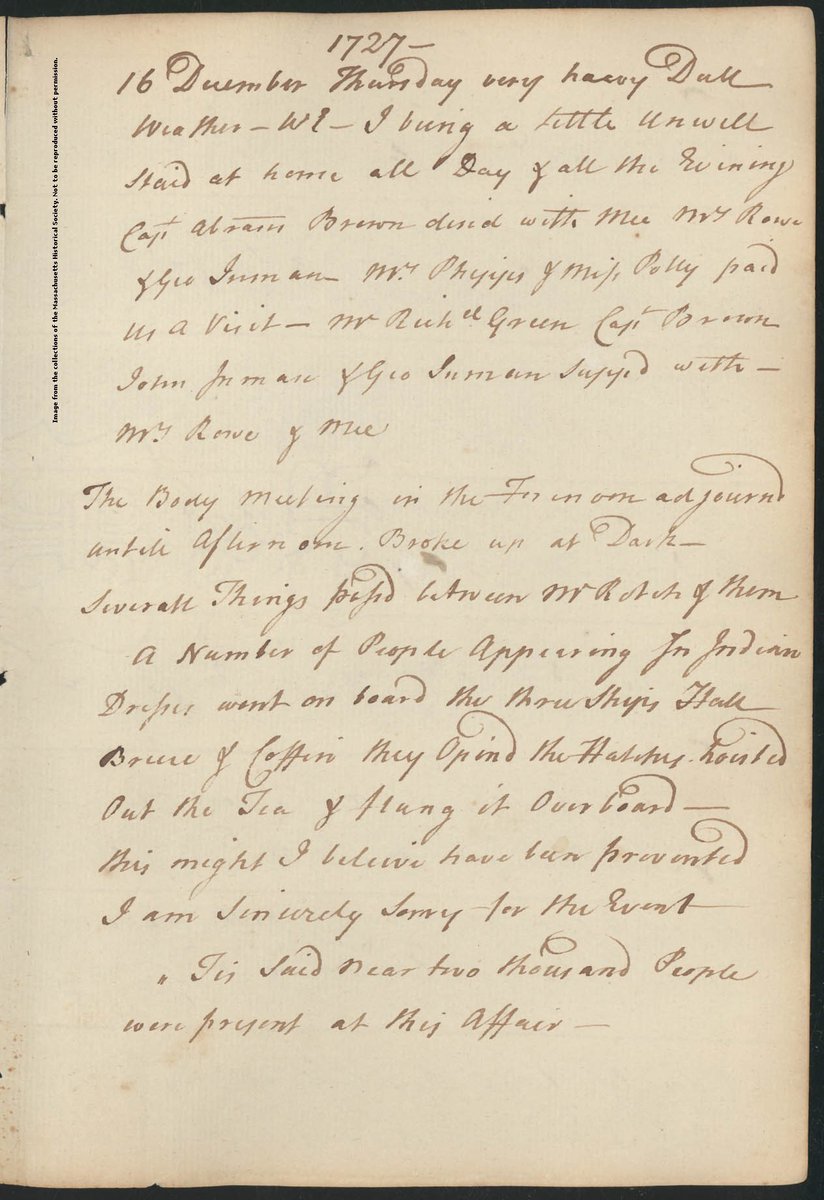 Image from the collections of the Massachusetts Historical Society. Not to be reproduced without permission.
1727—
16 December Thursday very heavy Dull
Weather — W — I being a little Unwell
staid at home all Day & all the Evining
Capt Abram Brown dined with Mee Mrs Rowe
& Geo Inman — Mrs Phipps & Miss Polly paid
us a Visit — Mr Richd Green Capt Brown
John Inman & Geo Inman Supp'd with —
Mrs Rowe & Mee
The Body meeting in the Forenoon adjournd
untill Afternoon. Broke up at Dark —
Severall Things passd between Mr Rotch & them
A Number of People Appearing In Indian
Dresses went on board the three Ships Hall
Bruce & Coffin they Opind the Hatches. hoisted
Out the Tea & flung it Overboard —
this might I beleive have been prevented
I am sincerely sorry for the Event
„ Tis said near two thousand People
were present at this Affair —